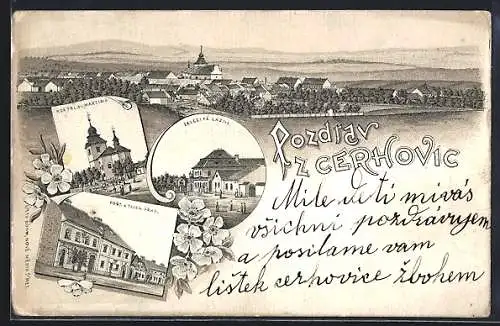 KOSTEL SV. MARTINA
ŽELEZITÉ LÁZNĚ
POŠT. A TELEGR. ÚŘAD.
Pozdrav
z CERHOVIC
Mile deti mivás
všichni pozdrávujem
a posilame vam
listek cerhovice žbohem